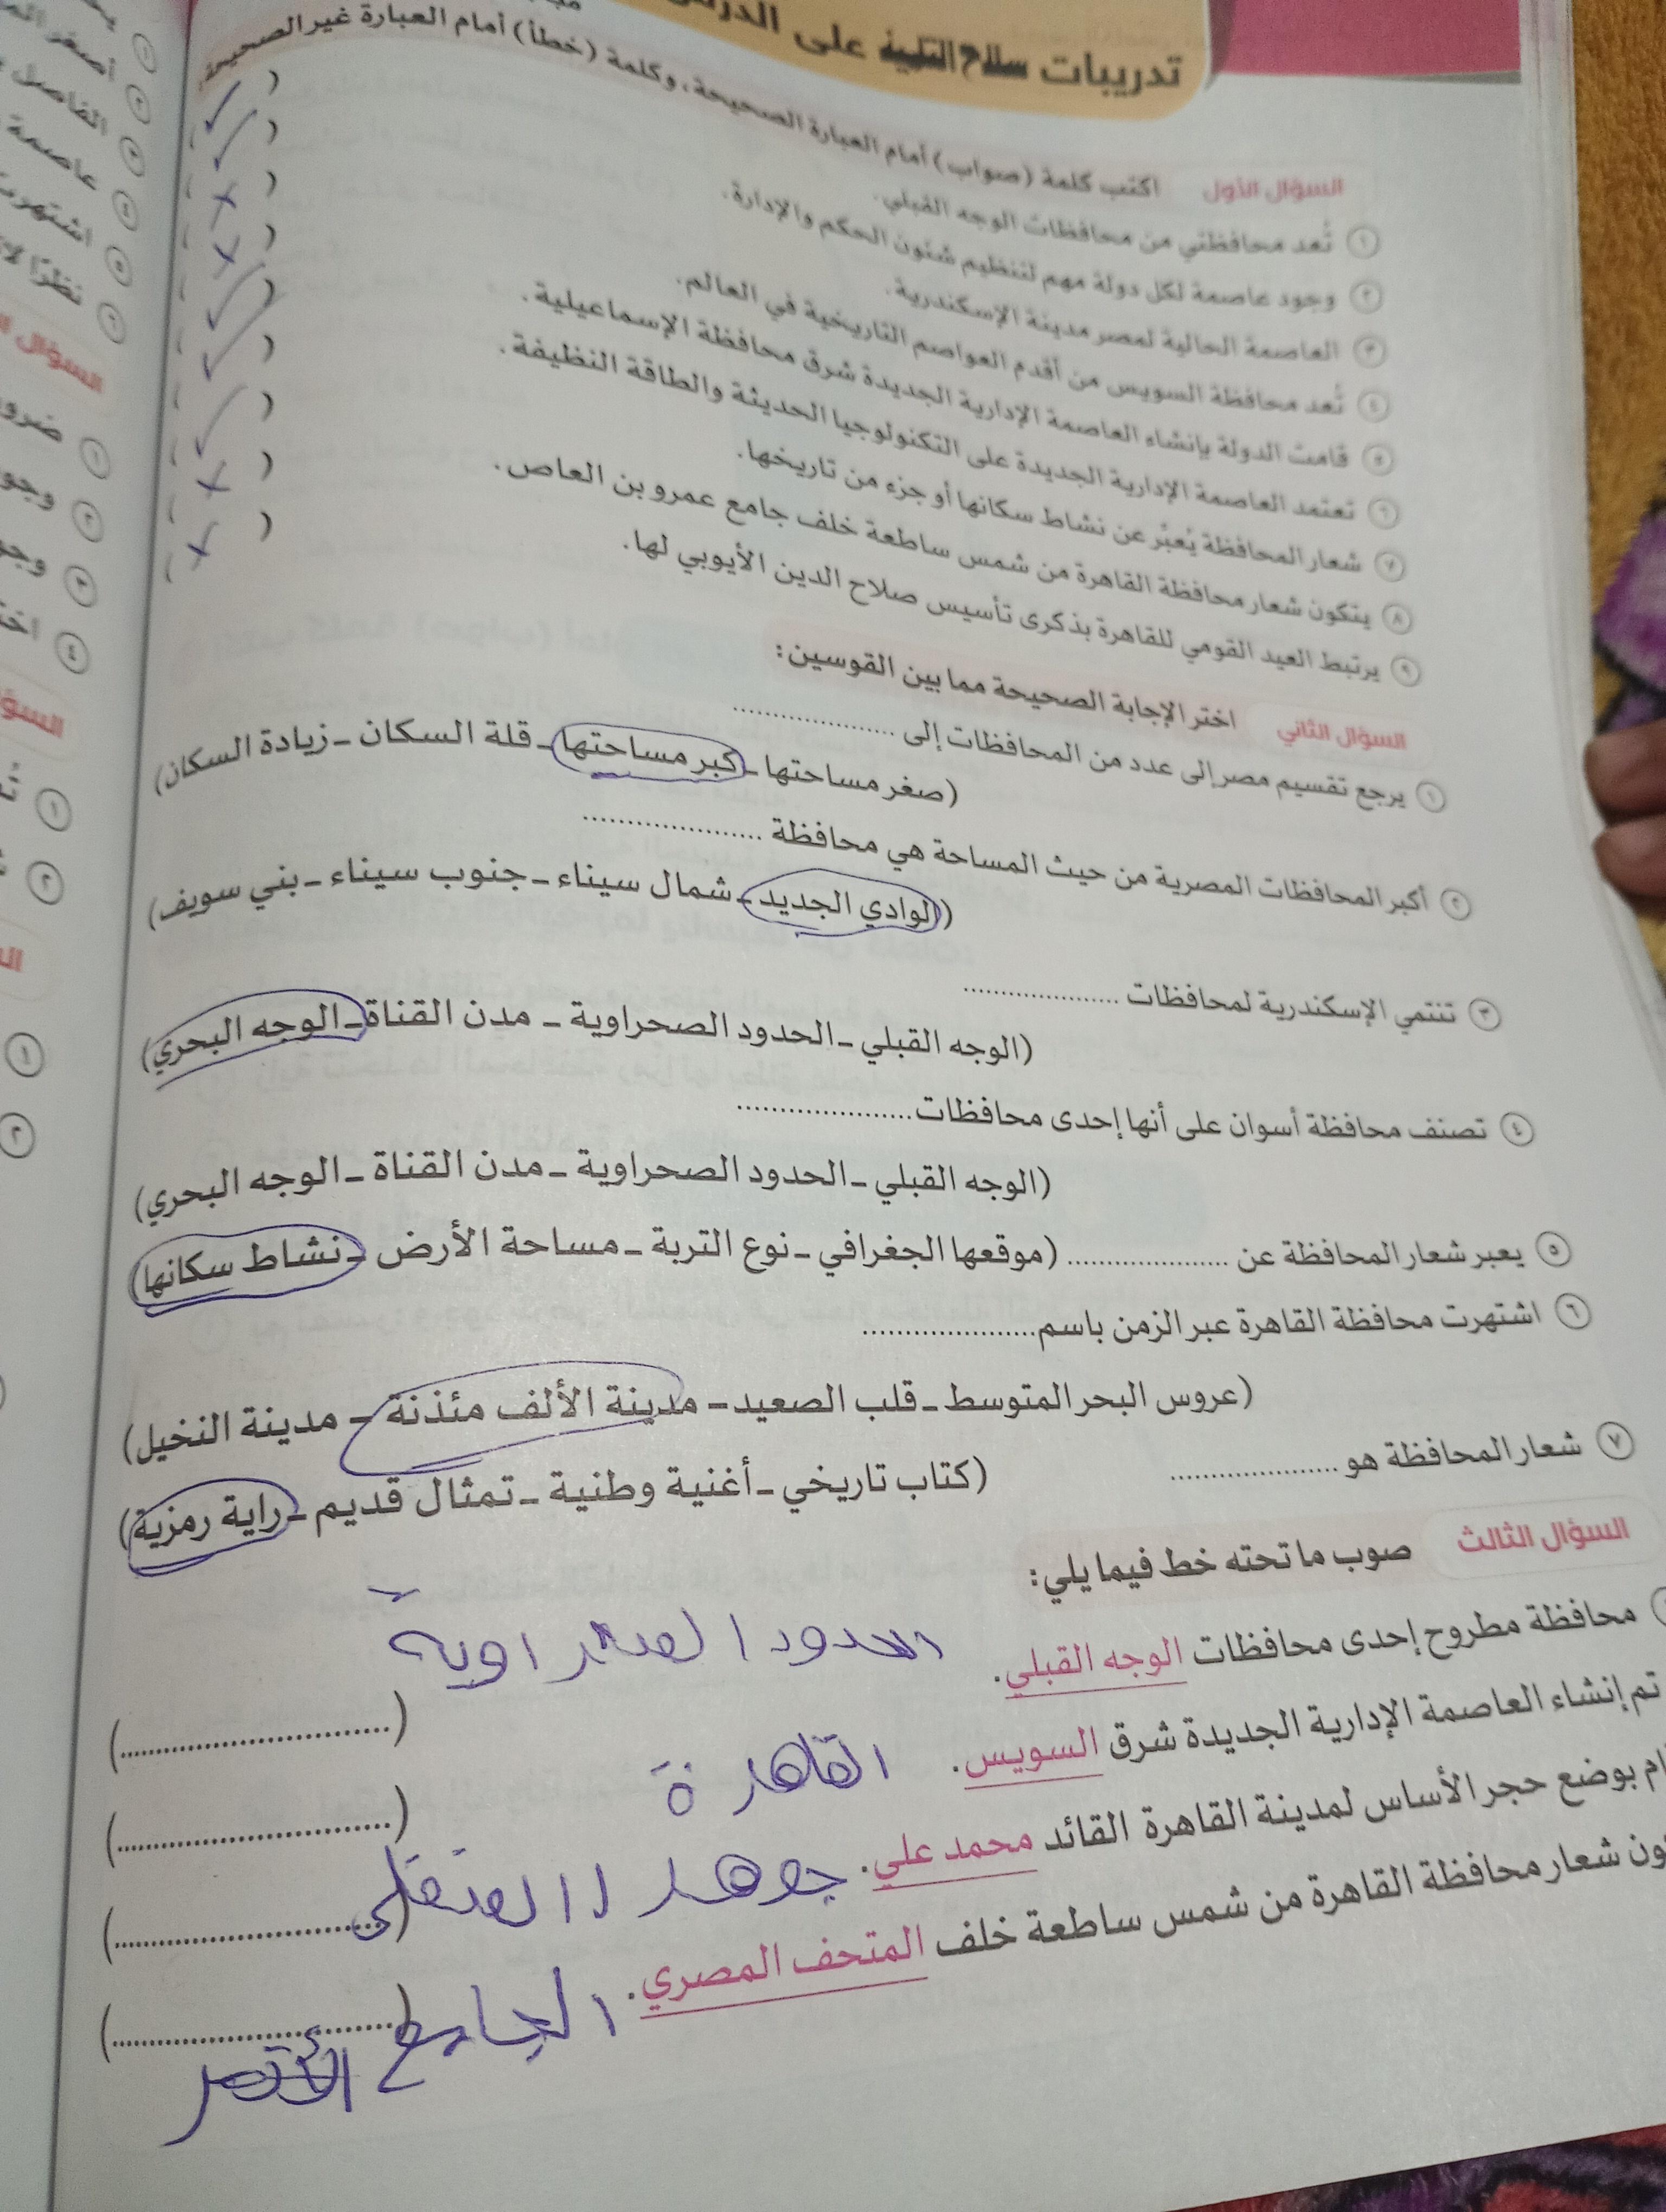 تدريبات سلاح التلميذ على الدرس
السؤال الأول اكتب كلمة (صواب) أمام العبارة الصحيحة، وكلمة (خطأ) أمام العبارة غير الصحيحة:
١ تُعد محافظتي من محافظات الوجه القبلي. ( ✓ )
٢ وجود عاصمة لكل دولة مهم لتنظيم شئون الحكم والإدارة. ( ✓ )
٣ العاصمة الحالية لمصر مدينة الإسكندرية. ( × )
٤ تُعد محافظة السويس من أقدم العواصم التاريخية في العالم. ( × )
٥ قامت الدولة بإنشاء العاصمة الإدارية الجديدة شرق محافظة الإسماعيلية. ( ✓ )
٦ تعتمد العاصمة الإدارية الجديدة على التكنولوجيا الحديثة والطاقة النظيفة. ( ✓ )
٧ شعار المحافظة يُعبِّر عن نشاط سكانها أو جزء من تاريخها. ( ✓ )
٨ يتكون شعار محافظة القاهرة من شمس ساطعة خلف جامع عمرو بن العاص. ( × )
٩ يرتبط العيد القومي للقاهرة بذكرى تأسيس صلاح الدين الأيوبي لها. ( × )
السؤال الثاني اختر الإجابة الصحيحة مما بين القوسين:
١ يرجع تقسيم مصر إلى عدد من المحافظات إلى ....................
(صغر مساحتها – كبر مساحتها – قلة السكان – زيادة السكان)
٢ أكبر المحافظات المصرية من حيث المساحة هي محافظة ....................
(الوادي الجديد – شمال سيناء – جنوب سيناء – بني سويف)
٣ تنتمي الإسكندرية لمحافظات ....................
(الوجه القبلي – الحدود الصحراوية – مدن القناة – الوجه البحري)
٤ تصنف محافظة أسوان على أنها إحدى محافظات ....................
(الوجه القبلي – الحدود الصحراوية – مدن القناة – الوجه البحري)
٥ يعبر شعار المحافظة عن .................... (موقعها الجغرافي – نوع التربة – مساحة الأرض – نشاط سكانها)
٦ اشتهرت محافظة القاهرة عبر الزمن باسم ....................
(عروس البحر المتوسط – قلب الصعيد – مدينة الألف مئذنة – مدينة النخيل)
٧ شعار المحافظة هو .................... (كتاب تاريخي – أغنية وطنية – تمثال قديم – راية رمزية)
السؤال الثالث صوب ما تحته خط فيما يلي:
محافظة مطروح إحدى محافظات الوجه القبلي. الحدود الصحراوية
(..............................)
تم إنشاء العاصمة الإدارية الجديدة شرق السويس. القاهرة
(..............................)
بوضع حجر الأساس لمدينة القاهرة القائد محمد علي. جوهر الصقلى
(..............................)
شعار محافظة القاهرة من شمس ساطعة خلف المتحف المصري. الجامع
(..............................)
السؤال
١ ضرو
٢ وجو
٣ وجو
٤